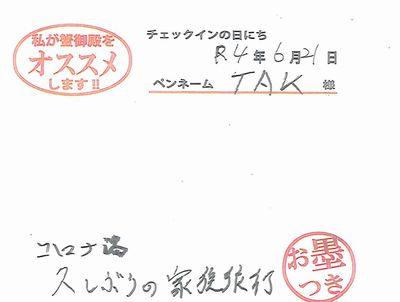 私が蟹御殿を
オススメ
します!!
チェックインの日にち
R4年6月21日
ペンネーム TAK 様
コロナ禍
久しぶりの家族旅行
お墨
つき